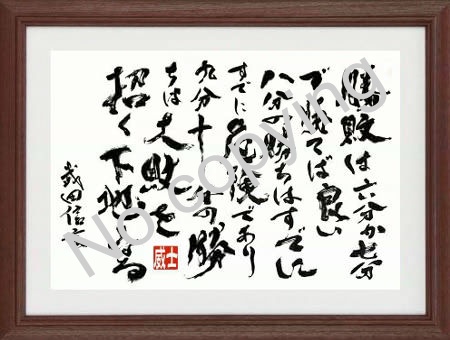 勝敗は六分か七分
で勝てば良い
八分の勝ちはすでに
すでに危険であり
九分十分の勝
ちは大敗を
招く下地となる
武田信玄
威士
No copying